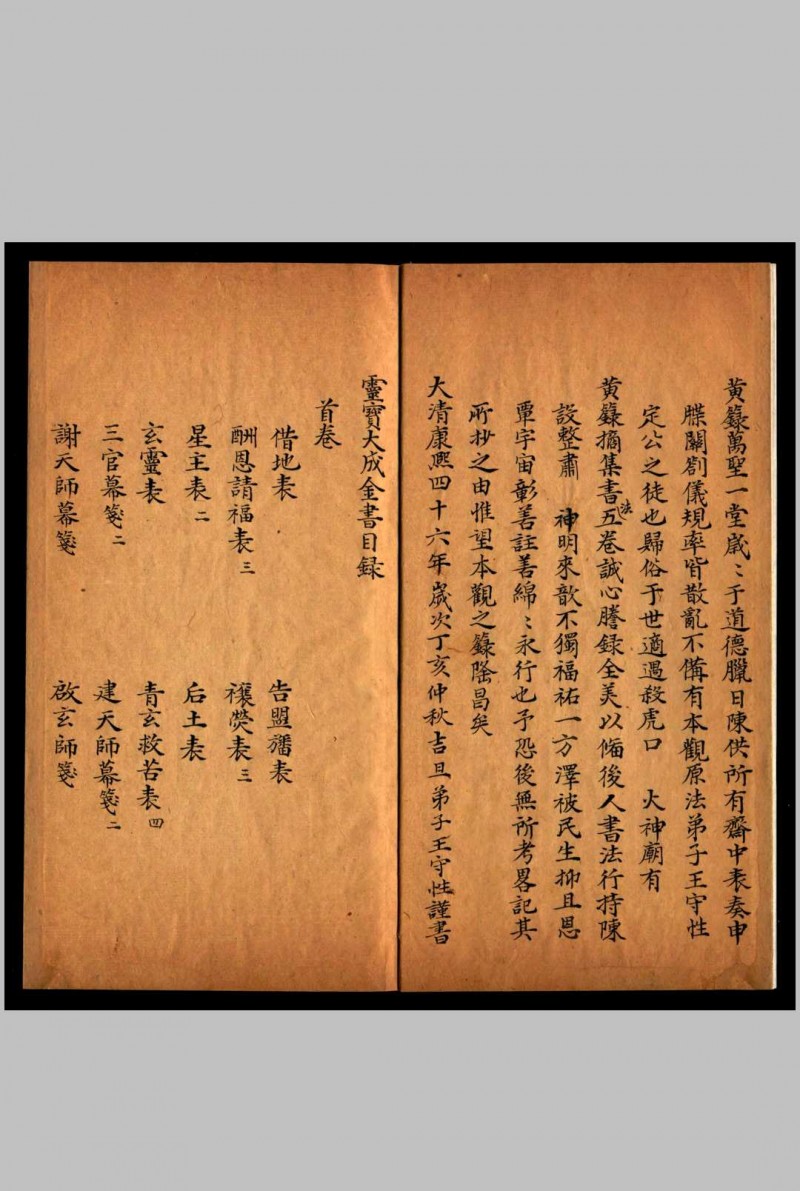 黄籙萬聖一堂歲〻于道德臘日陳供所有齋中表奏申
牒關劄儀規率皆散亂不備有本觀原法弟子王守性
定公之徒也歸俗于世適過殺虎口　火神廟有
黄籙摘集書法五卷誠心謄録全美以俻後人書法行持陳
設整肅　神明來歆不獨福祐一方澤被民生抑且恩
覃宇宙彰善註善綿〻永行也予恐後無所考畧記其
所抄之由惟望本觀之籙隆昌矣
大清康熙四十六年歲次丁亥仲秋吉旦弟子王守性謹書
靈寶大成金書目録
首卷
借地表　告盟旛表
酬恩請福表三　禳熒表三
星主表二　后土表
玄靈表　青玄救苦表四
三官幕箋二　建天師幕箋二
謝天師幕箋　啟玄師箋